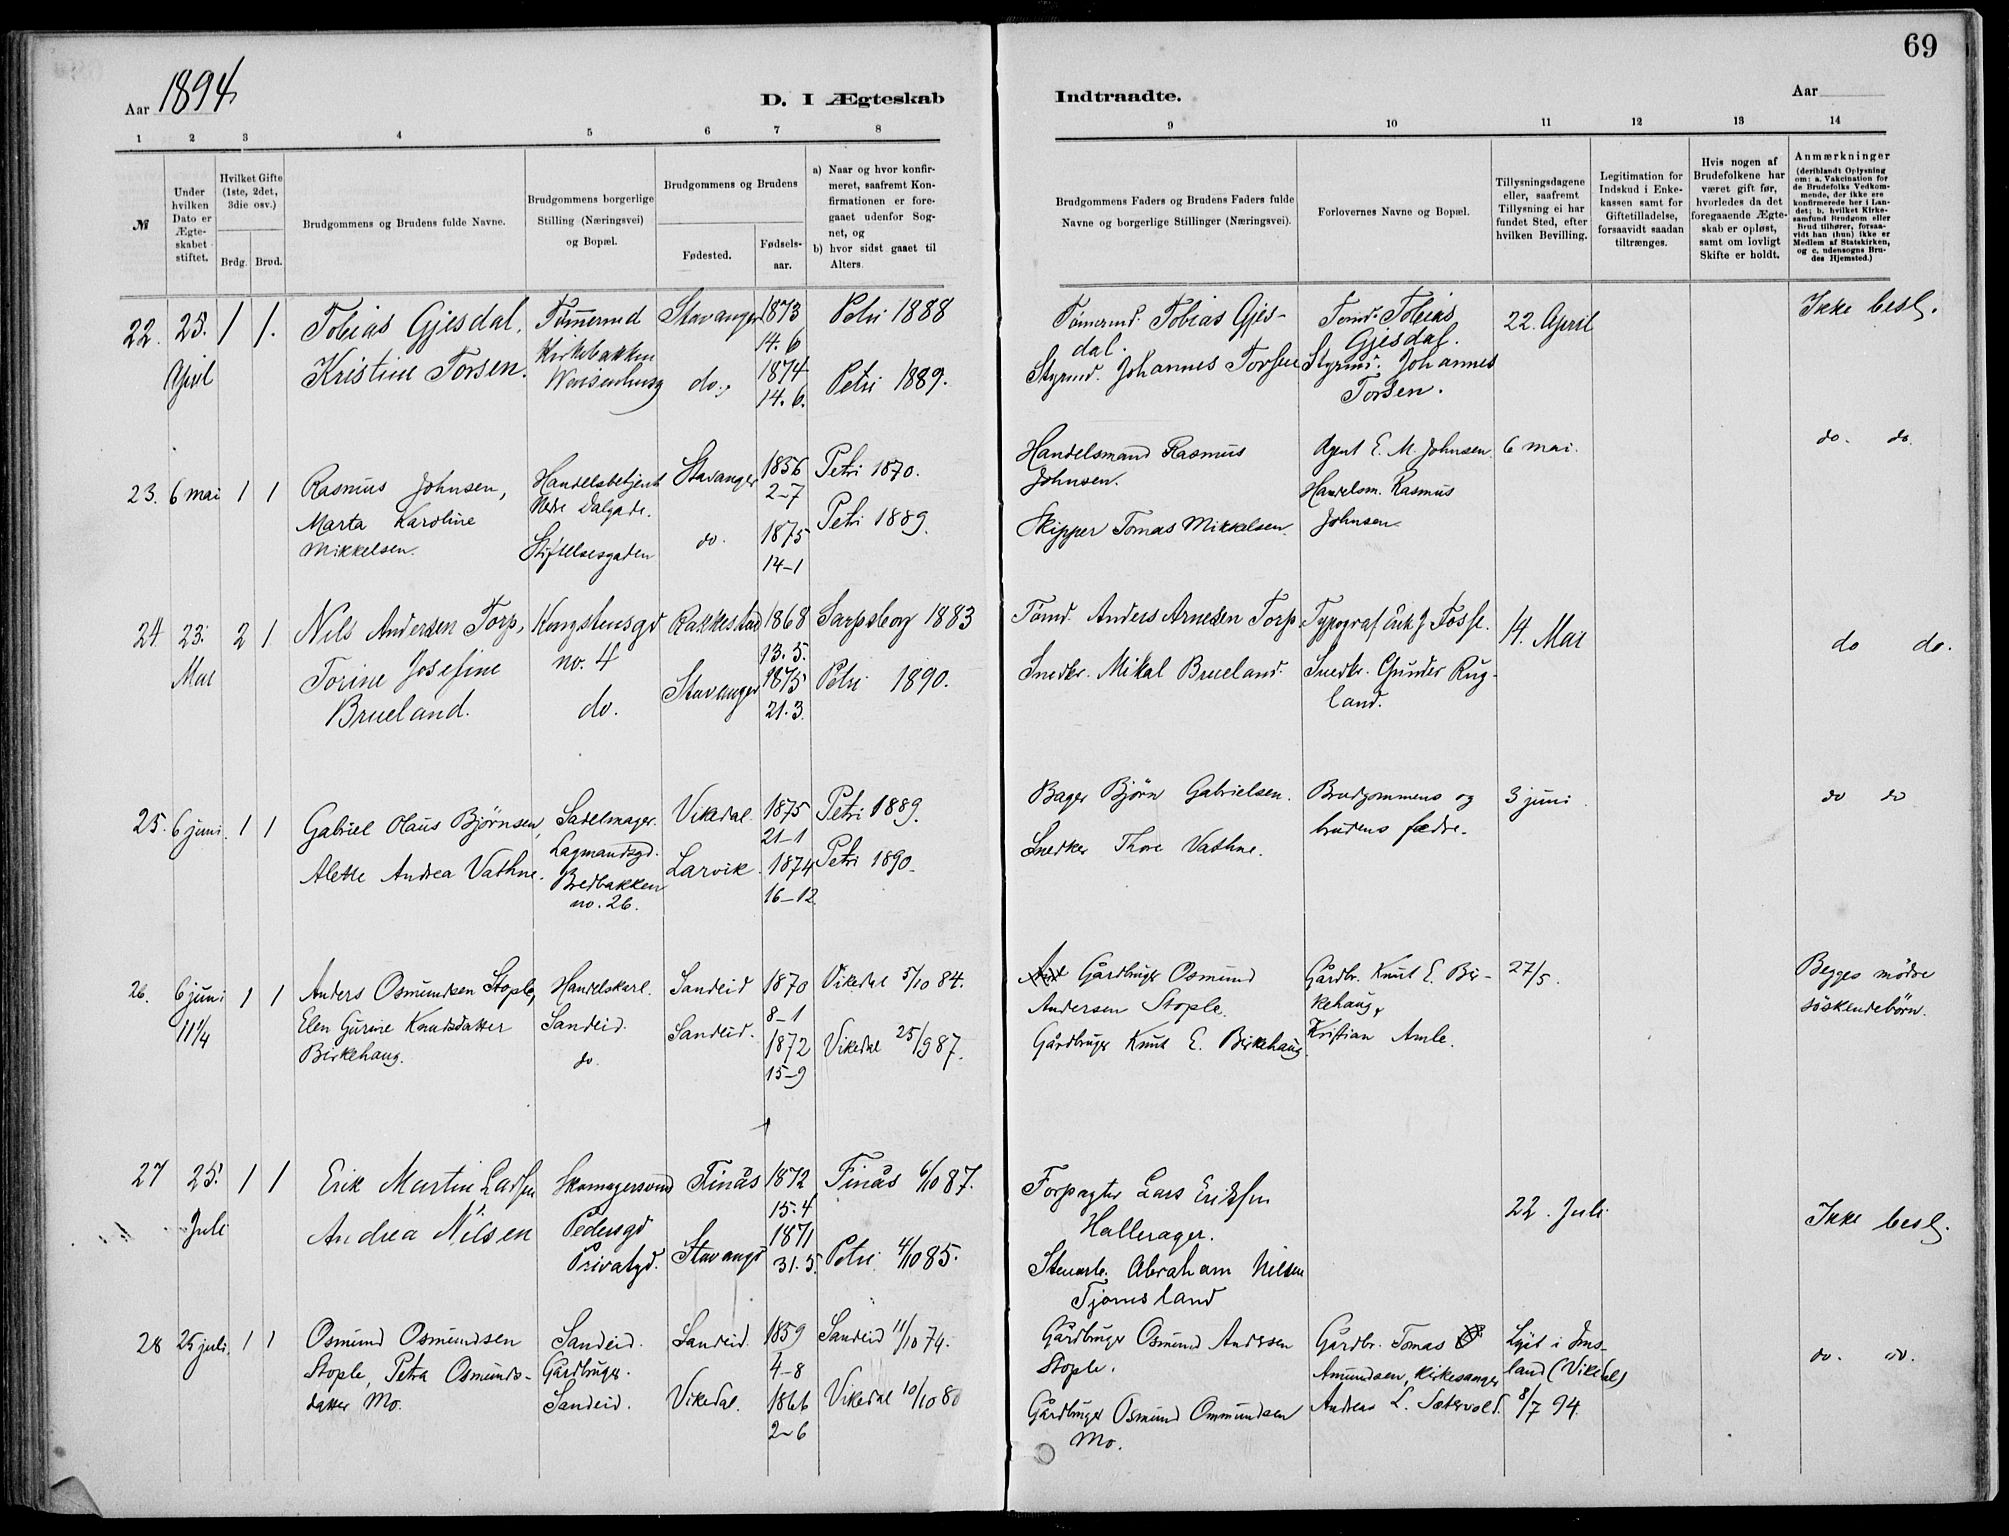 69
Aar 1894
D. I Ægteskab
Indtraadte.
Aar
1 2 3 4 5 6 7 8
9 10 11 12 13 14
№
Under hvilken Dato er Ægteskabet stiftet.
Hvilket Gifte (1ste, 2det, 3die osv.)
Brdg. Brud.
Brudgommens og Brudens fulde Navne.
Brudgommens borgerlige Stilling (Næringsvei) og Bopæl.
Brudgommens og Brudens
Fødested.
Fødselsaar.
a) Naar og hvor konfirmeret, saafremt Konfirmationen er foregaaet udenfor Sognet, og
b) hvor sidst gaaet til Alters.
Brudgommens Faders og Brudens Faders fulde Navne og borgerlige Stillinger (Næringsvei).
Forlovernes Navne og Bopæl.
Tillysningsdagene eller, saafremt Tillysning ei har fundet Sted, efter hvilken Bevilling.
Legitimation for Indskud i Enkekassen samt for Giftetilladelse, forsaavidt saadan tiltrænges.
Hvis nogen af Brudefolkene har været gift før, hvorledes da det foregaaende Ægteskab er opløst, samt om lovligt Skifte er holdt.
Anmærkninger
(deriblandt Oplysning om: a. Vakcination for de Brudefolks Vedkommende, der ikke ere konfirmerede her i Landet; b. hvilket Kirkesamfund Brudgom eller Brud tilhører, forsaavidt han (hun) ikke er Medlem af Statskirken, og c. udensogns Brudes Hjemsted.)
22. 25. April 1 1.
Tobias Gjesdal,
Kristine Torsen.
Tømermd
Kirkebakken
Stavanger
do.,
1873
14. 6
1874
14. 6.
Petri 1888
Petri 1889.
Tømermd. Tobias Gjes-
dal.
Styrmd. Johannes Torsen
Tømd. Tobias
Gjesdal.
Styrmd. Johannes
Torsen.
22. April
Ikke besl.
23. 6 mai 1 1
Rasmus Johnsen,
Marta Karoline
Mikkelsen.
Handelsbetjent
Nedre Dalgade.
Stiftelsesgaden
Stavanger
do.
1856
2-7
1875
14-1
Petri 1870.
Petri 1889.
Handelsmand Rasmus
Johnsen.
Skipper Tomas Mikkelsen.
Agent E. M. Johnsen
Handelsm. Rasmus
Johnsen.
6 mai.
do. do.
24. 23. Mai 2 1.
Nils Andersen Torp,
Torine Josefine
Brueland.
Kongstensgd
no. 4
do.
Rakkestad
Stavanger
1868
13. 5.
1875
21. 3.
Sarpsborg 1883
Petri 1890.
Tømd. Anders Arnesen Torp.
Snedkr. Mikal Brueland.
Typograf Erik J. Fosse.
Snedkr. Gunder Rug-
land.
14. Mai
do do.
25. 6 juni. 1 1
Gabriel Olaus Bjørnsen,
Alette Andrea Vathne.
Sadelmager.
Lagmandsgd.
Bredbakken
no. 26.
Vikedal
Larvik.
1875
21-1
1874
16-12
Petri 1889.
Petri 1890.
Bager Bjørn Gabrielsen.
Snedker Thore Vathne.
Brudgommens og
brudens fædre.
3 juni.
do do
26. 6 juni 11¼ 1 1
Anders Osmundsen Stople,
Elen Gurine Knudsdatter
Birkehaug.
Handelskarl.
Sandeid.
do.
Sandeid
Sandeid.
1870
8-1
1872
15-9
Vikedal 5/10 84.
Vikedal 25/9 87.
Gårdbruger Osmund
Andersen Stople.
Gårdbruger Knut E. Birkehaug.
Gårdbr. Knut E. Bir-
kehaug,
Kristian Amle.
27/5.
Begges mødre
søskendebørn.
27 25. Juli 1 1
Erik Martin Larsen
Andrea Nilsen
Skomagersvend
Pedersgd
Privatgd.
Finås
Stavanger
1872
15. 4
1871
31. 5.
Finås 6/10 87.
Petri 4/10 85.
Forpagter Lars Eriksen
Hallerager.
Stenarb. Abraham Nilsen
Tjomsland
22. Juli
Ikke besl.
28 25 juli. 1 1
Osmund Osmundsen
Stople, Petra Osmunds-
datter Mo.
Sandeid.
Gårdbruger.
Sandeid.
Sandeid.
Vikedal.
1859
4-8
1866
2-6
Sandeid 11/10 74.
Vikedal 10/10 80
Gårdbruger Osmund Andersen
Stople.
Gårdbruger Osmund Ommundsen
Mo.
Gårdbr. Tomas
Amundsen, kirkesanger
Andreas L. Sætervold.
Lyst i Ims-
land (Vikedal)
8/7 94.
do. do.